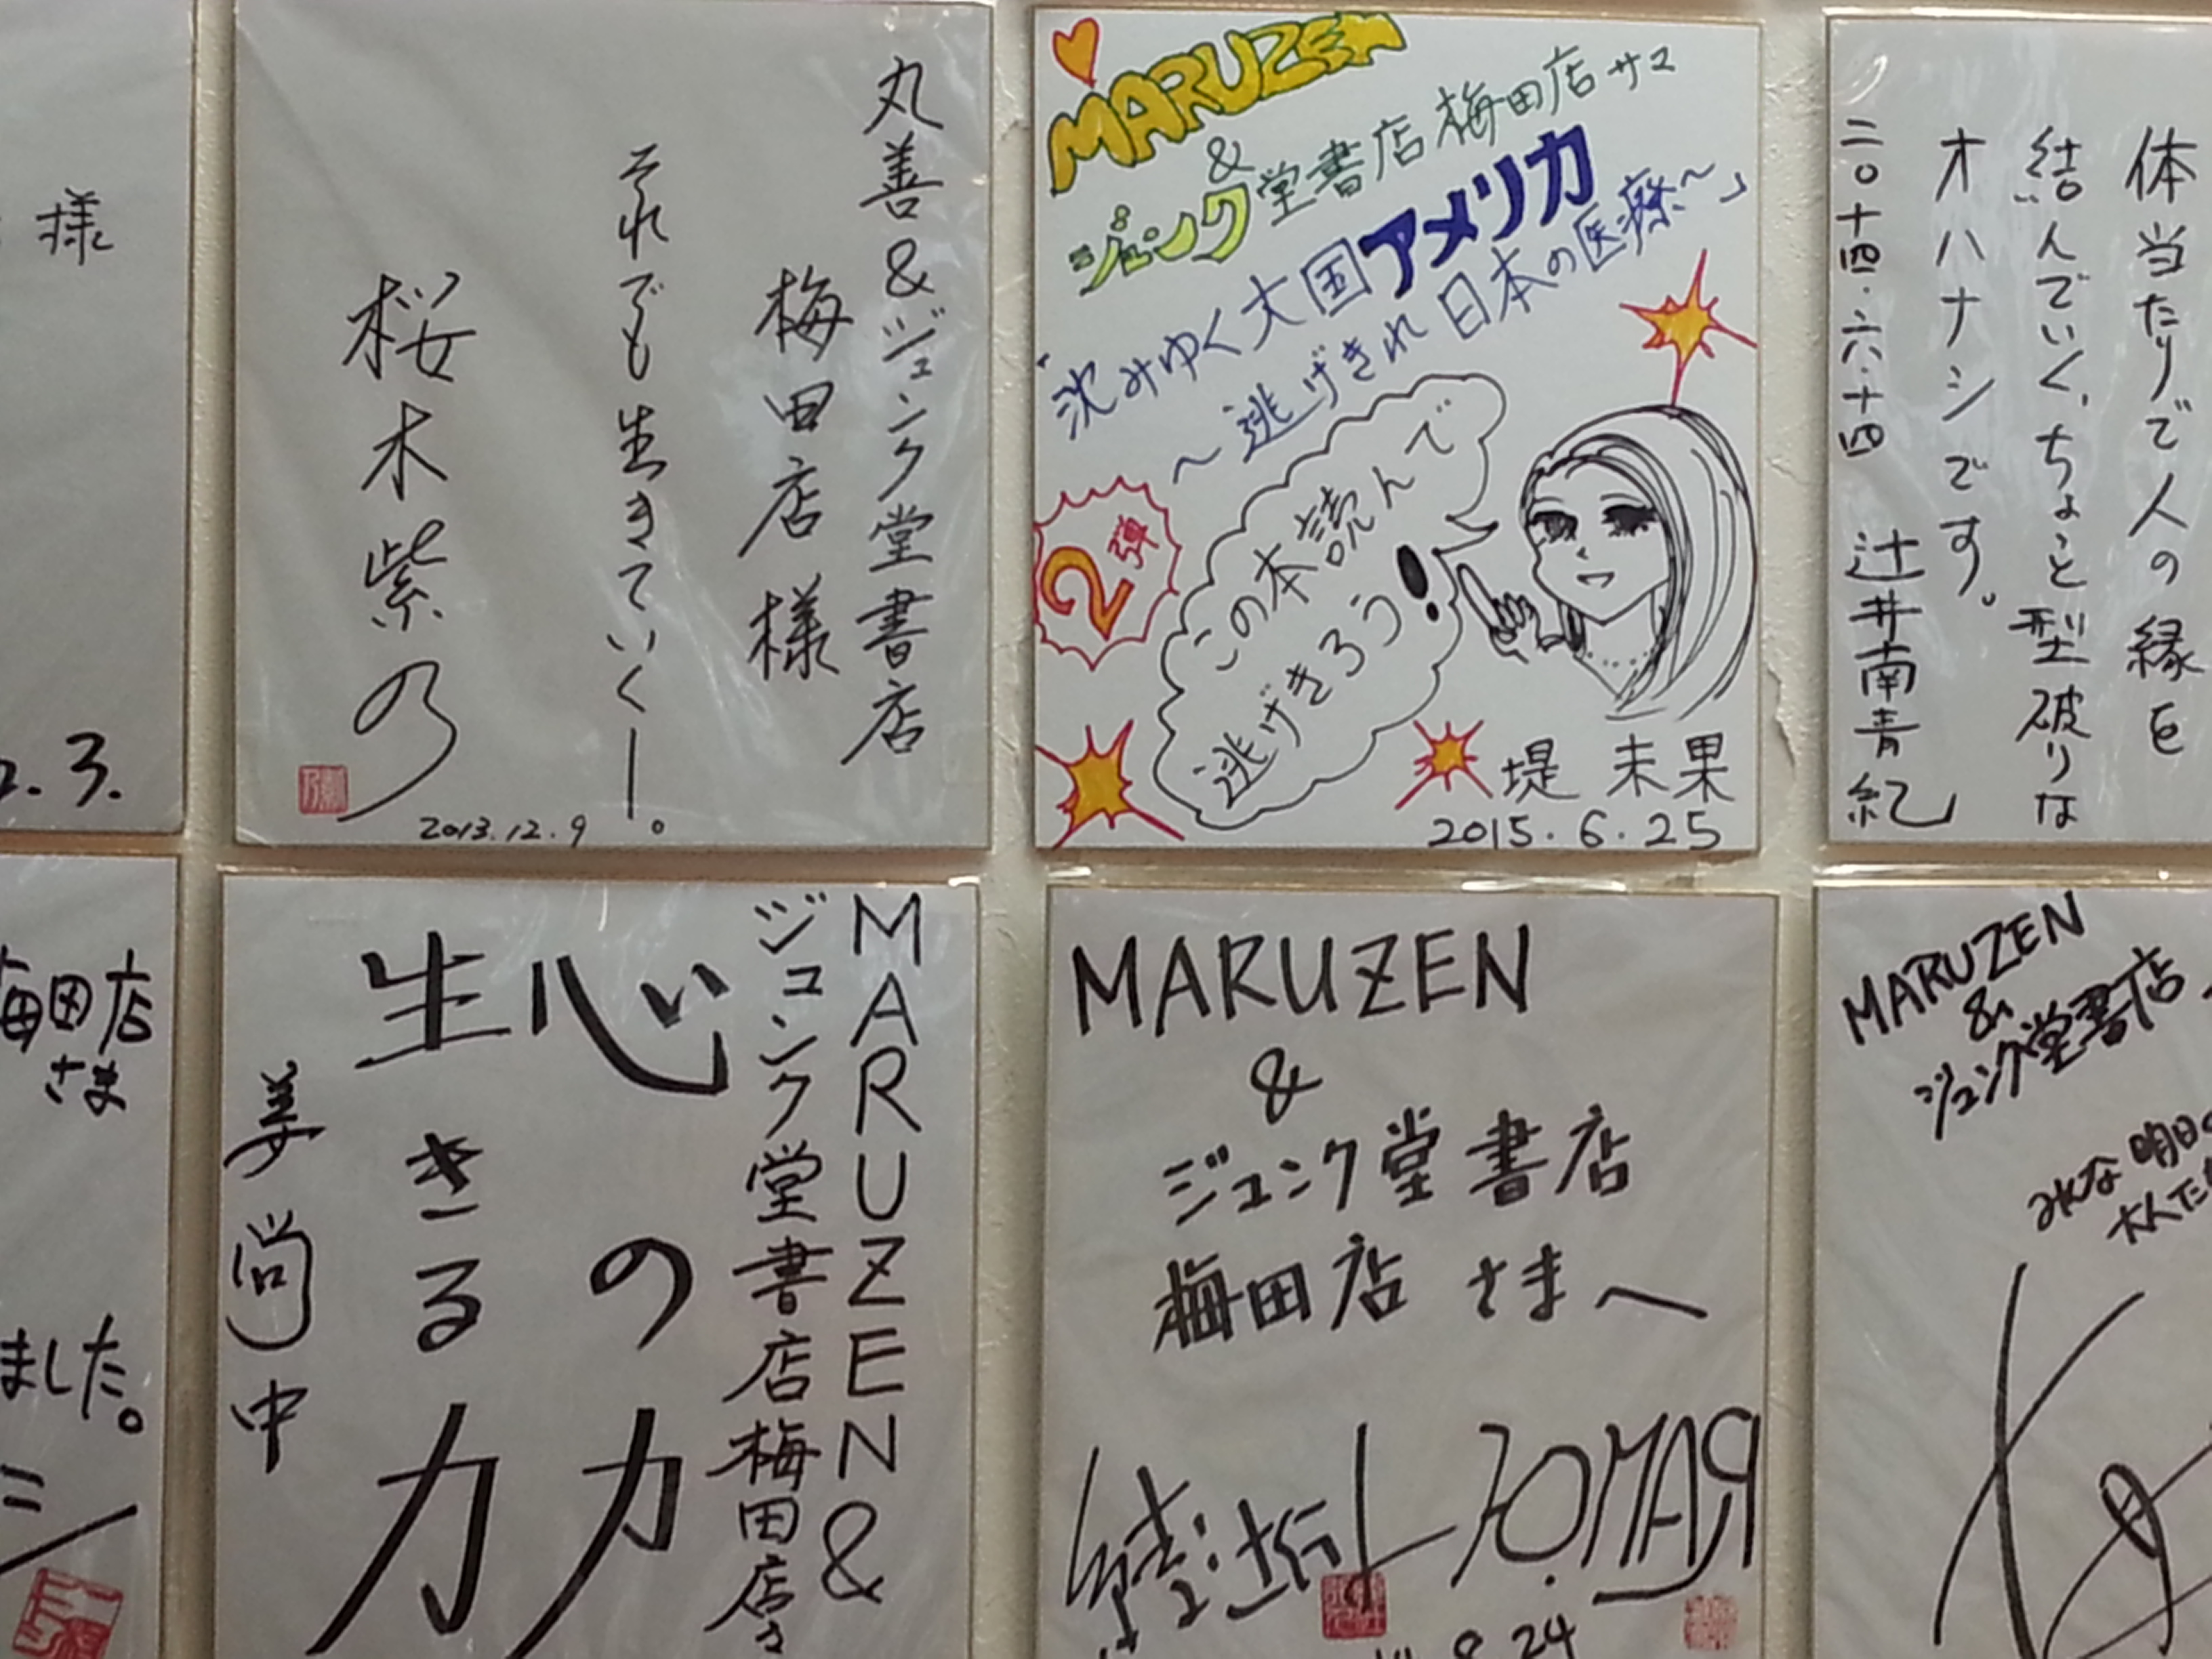 様
2.3.
丸善&ジュンク堂書店
梅田店様
それでも生きていくー。
桜木紫乃
2013.12.9
MARUZEN
&
ジュンク堂書店梅田店サマ
「沈みゆく大国アメリカ
〜逃げきれ日本の医療〜」
2弾
この本読んで
逃げきろう!
堤 未果
2015.6.25
体当たりで人の縁を
結んでいく、ちょっと型破りな
オハナシです。
二〇十四.六.十四 辻井南青紀
梅田店
さま
ました。
MARUZEN&
ジュンク堂書店梅田店さま
心の力
生きる力
姜尚中
MARUZEN
&
ジュンク堂書店
梅田店 さまへ
8.24
MARUZEN
&
ジュンク堂書店
みんな明日の